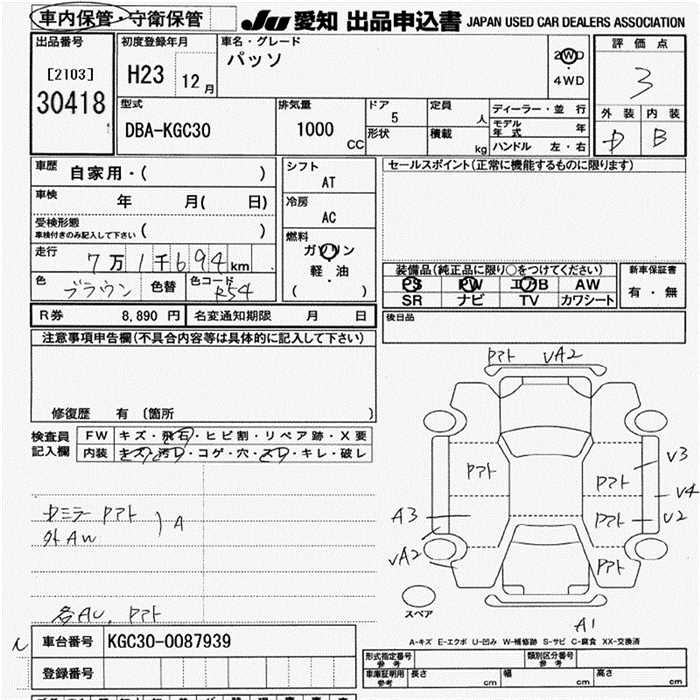 車内保管・守衛保管
JU 愛知 出品申込書 JAPAN USED CAR DEALERS ASSOCIATION
出品番号
[2103]
30418
初度登録年月
H23 12月
車名・グレード
パッソ
2WD
4WD
評価点
3
外装 内装
B
型式
DBA-KGC30
排気量
1000 CC
ドア
5
形状
定員
人
積載
kg
ディーラー・並行
モデル年式 年
ハンドル 左・右
車歴 自家用・( )
車検 年 月( 日)
受検形態
車検付きのみ記入して下さい ( )
走行 7万1千694km
色 ブラウン 色替 色コード R54
シフト
AT
冷房
AC
燃料
ガソリン
軽・油
( )
セールスポイント(正常に機能するものに限ります)
装備品(純正品に限り〇をつけてください)
PS PW エアB AW
SR ナビ TV カワシート
新車保証書
有・無
R券 8,890 円 名変通知期限 月 日
後日品
注意事項申告欄(不具合内容等は具体的に記入して下さい)
修復歴 有 〔箇所 〕
検査員記入欄
FW キズ・飛石・ヒビ割・リペア跡・X要
内装 キズ・汚れ・コゲ・穴・スレ・キレ・破レ
ミラー P外ト
外AW
A
P外ト VA2
P外ト
P外ト
V3
V4
A3
P外ト U2
VA2
P外ト
スペア
A1
A-キズ E-エクボ U-凹み W-補修跡 S-サビ C-腐食 XX-交換済
車台番号 KGC30-0087939
登録番号
形式指定番号 参考
類別区分番号 参考
車庫証明用 参考 長さ cm 幅 cm 高さ cm